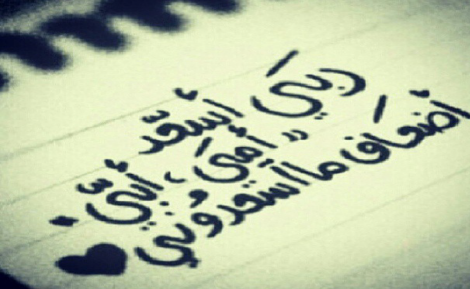 ربي أسعد
" أمي ، أبي "
أضعاف ما أسعدوني